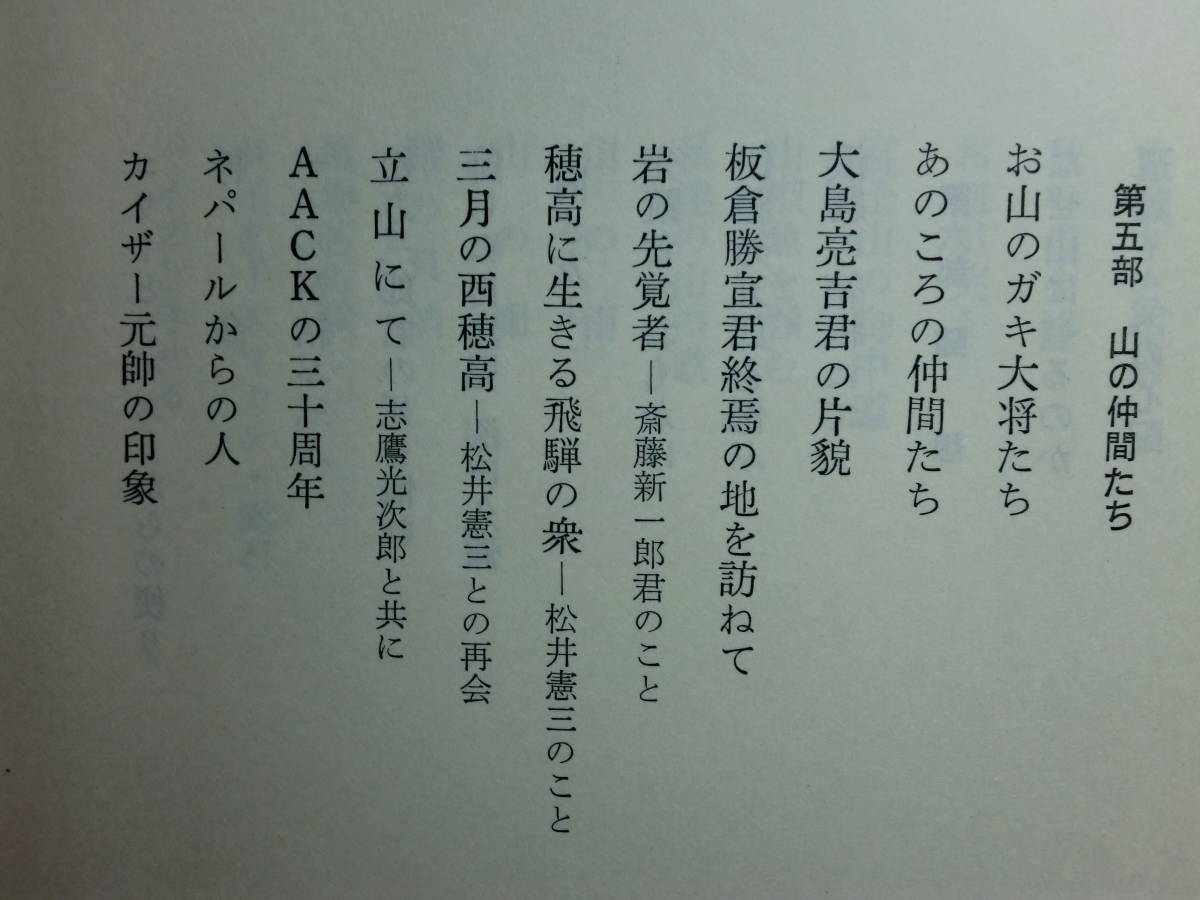 第五部　山の仲間たち
お山のガキ大将たち
あのころの仲間たち
大島亮吉君の片貌
板倉勝宣君終焉の地を訪ねて
岩の先覚者―斎藤新一郎君のこと
穂高に生きる飛騨の衆―松井憲三のこと
三月の西穂高―松井憲三との再会
立山にて―志鷹光次郎と共に
AACKの三十周年
ネパールからの人
カイザー元帥の印象